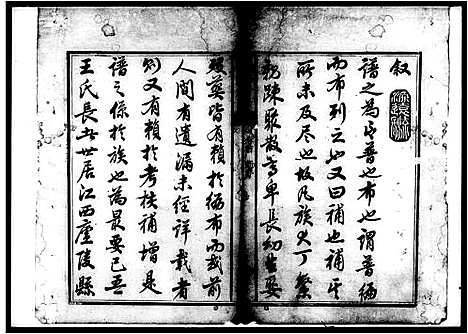 叙
譜之為言普也布也謂普徧
而布列之也又曰補也補其
所未及尽也故凡族大丁繁
親疎聚散尊卑長幼生娶
殁葬皆有賴於徧布而或前
人間有遺漏未經詳載者
則又有賴於考核補增是
譜之係於族也為最要已吾
王氏長房世居江西廬陵縣